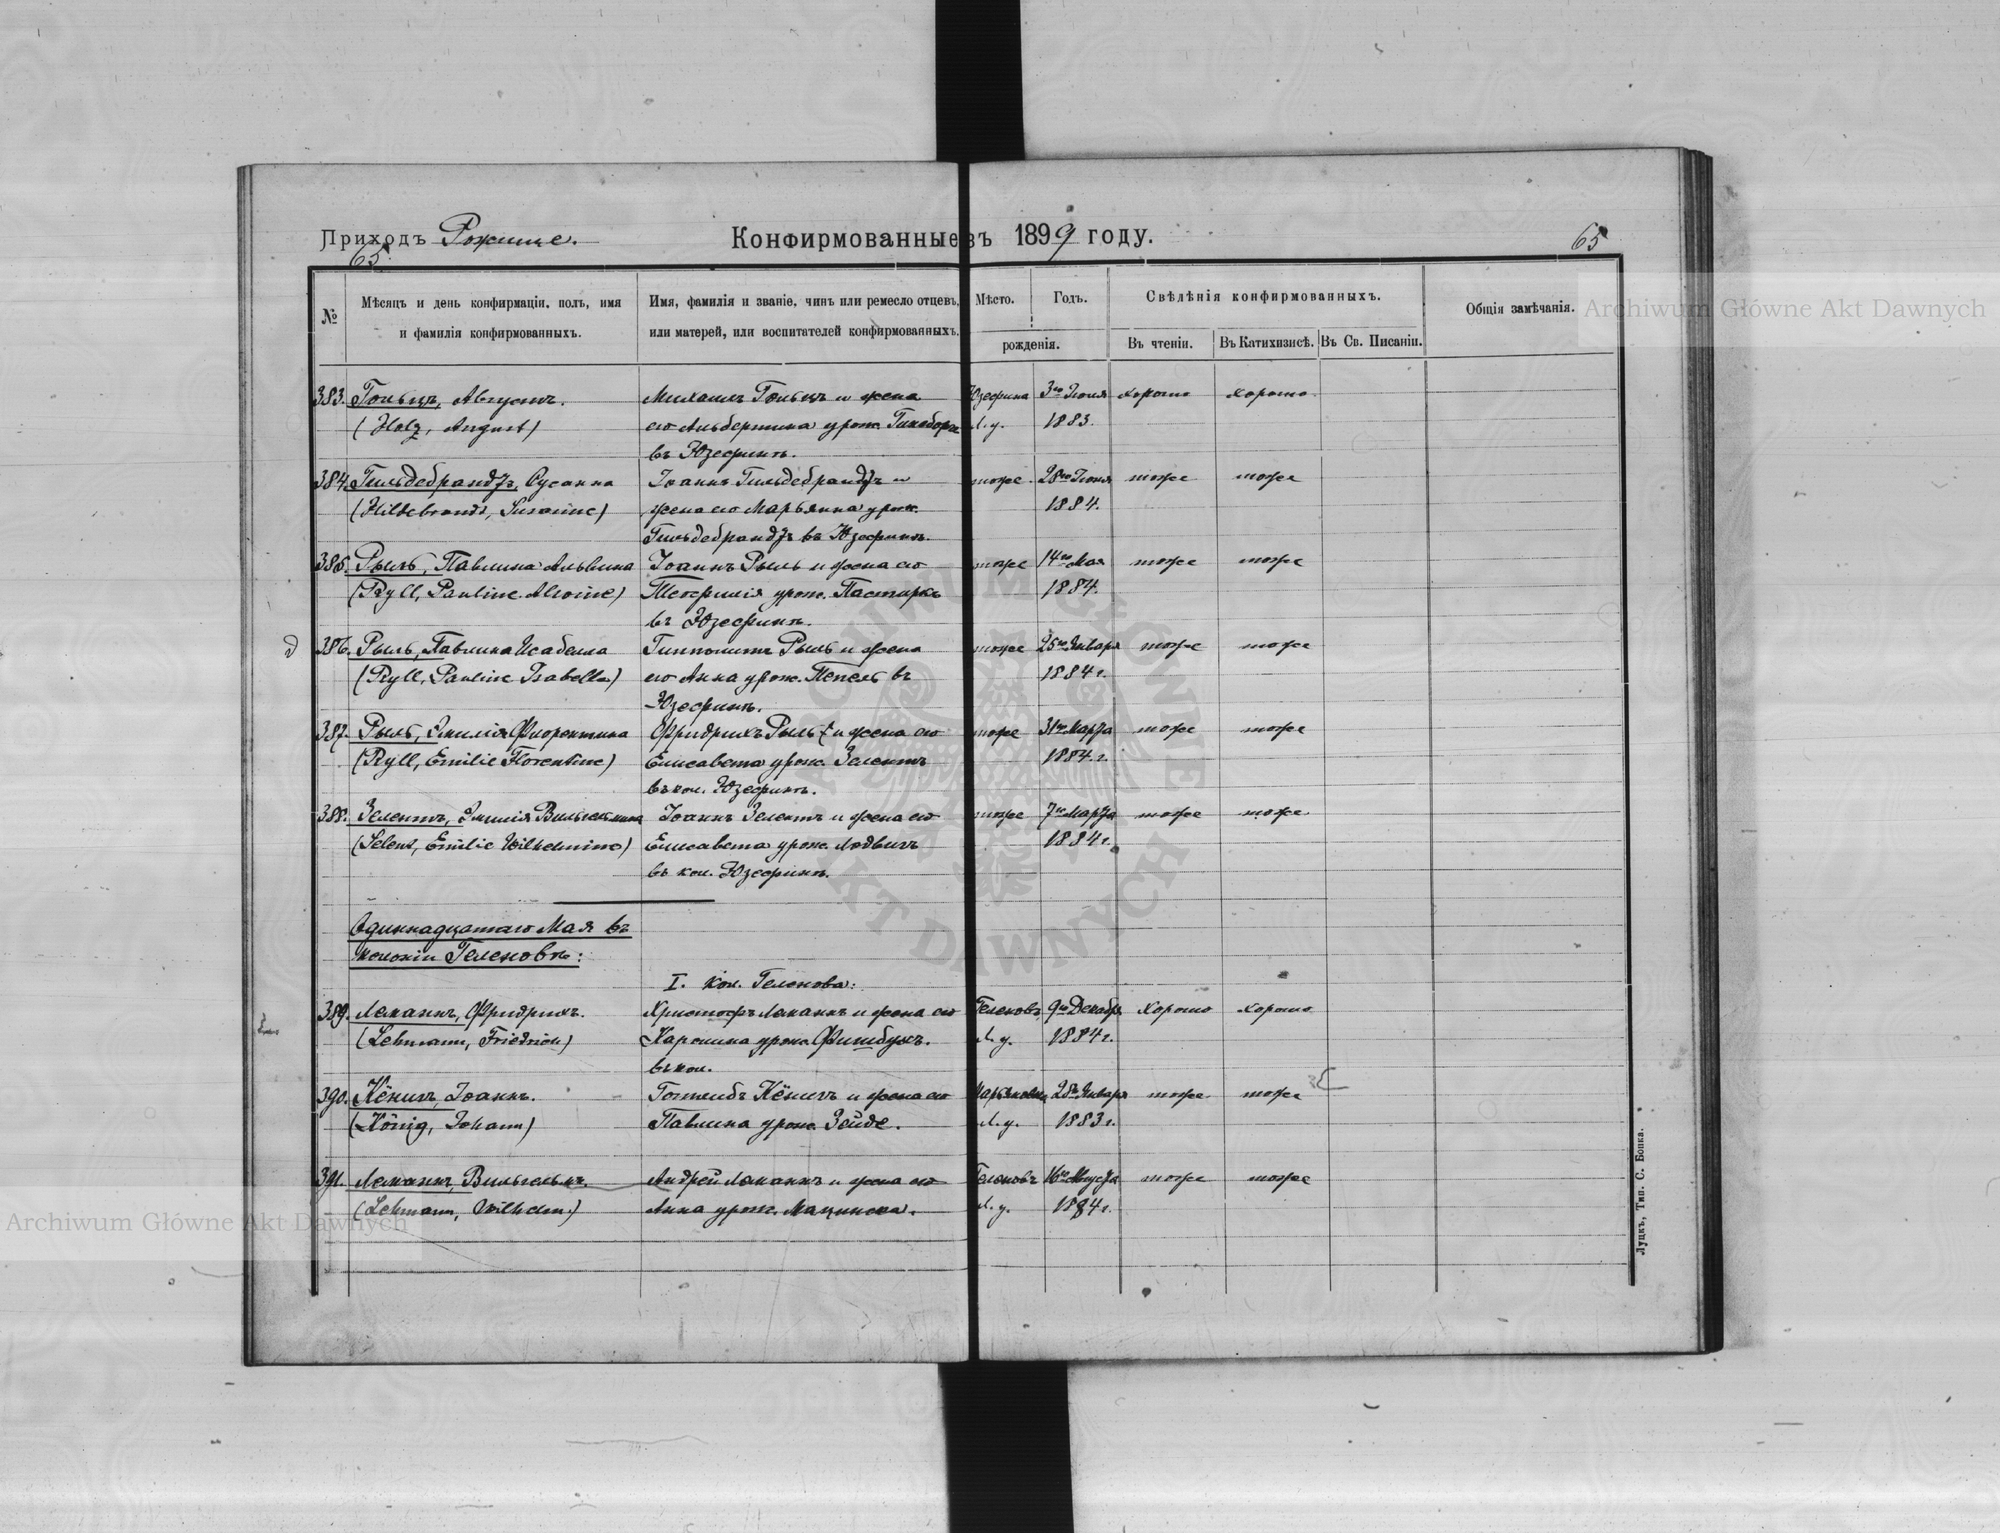 Приходъ Рожище.
Конфирмованные въ 1899 году.
65
65.
№
Мѣсяцъ и день конфирмаціи, полъ, имя
и фамилія конфирмованныхъ.
Имя, фамилія и званіе, чинъ или ремесло отцевъ,
или матерей, или воспитателей конфирмованныхъ.
Мѣсто.
Годъ.
рожденія.
Свѣдѣнія конфирмованныхъ.
Въ чтеніи.
Въ Катихизисѣ.
Въ Св. Писаніи.
Общія замѣчанія.
383. Гольцъ, Августъ. Михаилъ Гольцъ и жена Юзефина 3го Іюля хорошо хорошо
(Holz, August) его Альбертина урож. Л. у. 1883.
въ Юзефинѣ.
384. Гильдебрандтъ, Сусанна Іоаннъ Гильдебрандтъ и тоже 28го Іюня тоже тоже
(Hildebrandt, Susanne) жена его Марьянна урож. 1884.
Гильдебрандтъ въ Юзефинѣ.
385. Рылъ, Павлина Альвина Іоаннъ Рыль и жена его тоже 14го Мая тоже тоже
(Ryll, Pauline Alwine) урож. 1884.
въ Юзефинѣ.
386. Рылъ, Павлина Исабелла Гипполитъ Рыль и жена тоже 25го Января тоже тоже
(Ryll, Pauline Isabella) его Анна урож. Пепель въ 1884 г.
Юзефинѣ.
387. Рылъ, Эмилія Флорентина Фридрихъ Рыль и жена его тоже 31го Марта тоже тоже
(Ryll, Emilie Florentine) Елисавета урож. Зелентъ 1884 г.
въ кол. Юзефинѣ.
388. Зелентъ, Эмилія Вильгельмина Іоаннъ Зелентъ и жена его тоже 7го Марта тоже тоже
(Selent, Emilie Wilhelmine) Елисавета урож. Людвигъ 1884 г.
въ кол. Юзефинѣ.
Одиннадцатаго Мая въ
колоніи Геленовѣ:
I. Кол. Геленова:
389. Леманнъ, Фридрихъ. Христофъ Леманнъ и жена его Геленовъ 9го Декабря хорошо хорошо
(Lehmann, Friedrich) Каролина урож. Фишбухъ. Л. у. 1884 г.
въ кол.
390. Кёнигъ, Іоаннъ. Готтлибъ Кёнигъ и жена его Марьяновка 28го Января тоже тоже
(König, Johann) Павлина урож. Зейде. Л. у. 1883 г.
391. Леманнъ, Вильгельмъ. Андрей Леманнъ и жена его Геленовъ 16го Августа тоже тоже
(Lehmann, Wilhelm) Анна урож. Л. у. 1884 г.
Луцкъ, Тип. С. Бонка.
Archiwum Główne Akt Dawnych
Archiwum Główne Akt Dawnych
ARCHIWUM GŁÓWNE AKT DAWNYCH